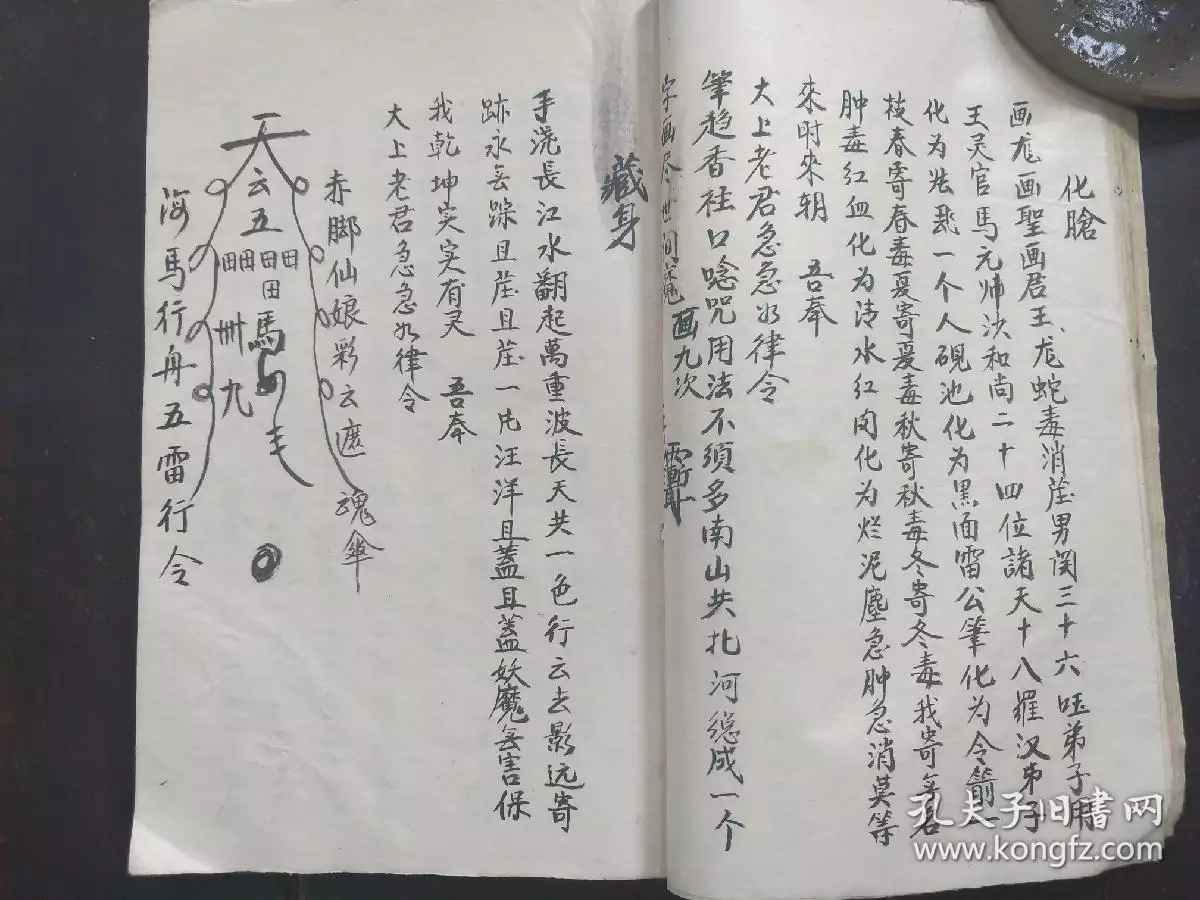 化膾
画龙画聖画君王龙蛇毒消茫男関三十六吐弟子用
王灵官馬元帅沙和尚二十四位諸天十八羅汉弟子
化为法一个人硯池化为黒面雷公筆化为令箭一
枝春寄春毒夏寄夏毒秋寄秋毒冬寄冬毒我寄無名
肿毒红血化为清水红肉化为烂泥塵急肿急消莫等
來时來朝 吾奉
太上老君急急如律令
筆超香柱口唸咒用法不須多南山共北河總成一个
字画尽世间魔 画九次
藏身
手澆長江水翻起萬重波長天共一色行云去影远寄
跡永無踪且茫且茫一片汪洋且蓋且蓋妖魔無害保
我乾坤实实有灵 吾奉
太上老君急急如律令
赤脚仙娘彩云遮魂傘
天
云
五
田田田田
田
馬
卅
九
海馬行舟五雷行令
孔夫子旧书网
www.kongfz.com